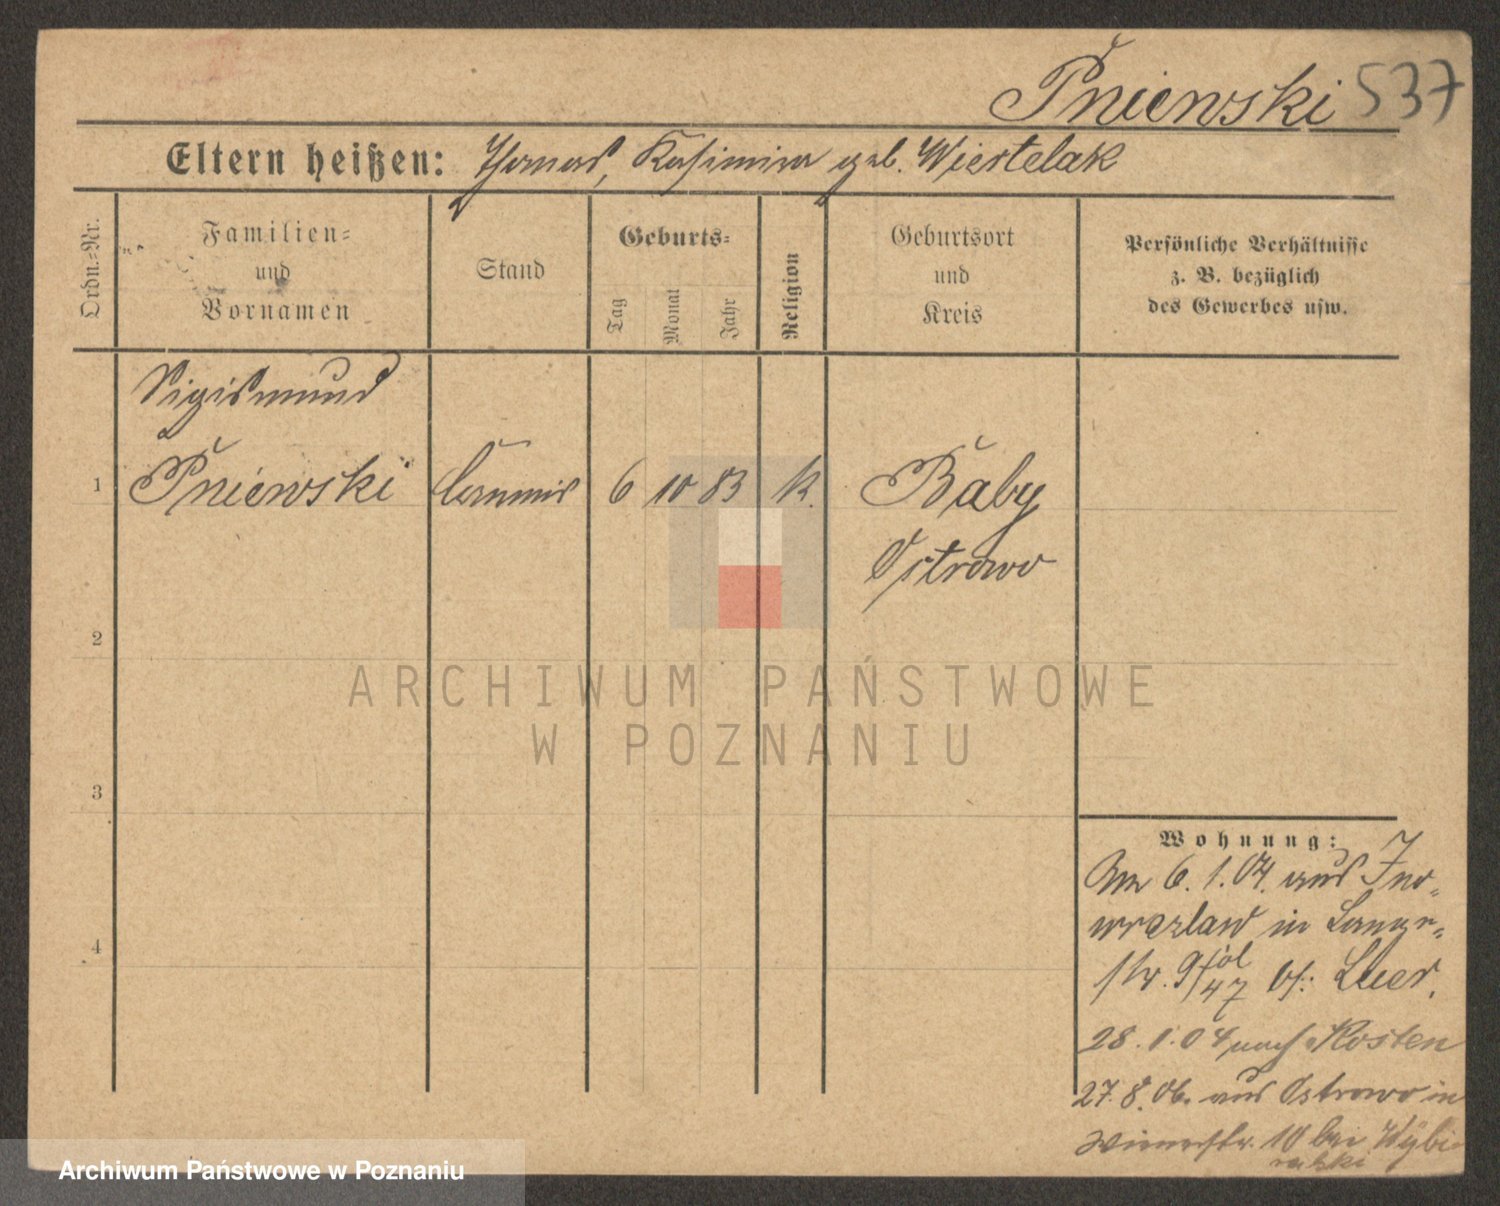 Pniewski 537
Eltern heißen: Thomas, Kasimira geb. Wiertelak
Ordn.-Nr.
Familien-
und
Vornamen
Stand
Geburts-
Tag
Monat
Jahr
Religion
Geburtsort
und
Kreis
Persönliche Verhältnisse
z. B. bezüglich
des Gewerbes usw.
Sigismund
1 Pniewski Commis 6 10 83 k. Baby
Ostrowo
2
3
4
Wohnung:
Am 6. 1. 04. aus Ino-
wrazlaw in Lange-
str. 9 bei
28. 1. 04 nach Kosten
27. 8. 06. aus Ostrowo in
10 bei
ARCHIWUM PAŃSTWOWE
W POZNANIU
Archiwum Państwowe w Poznaniu